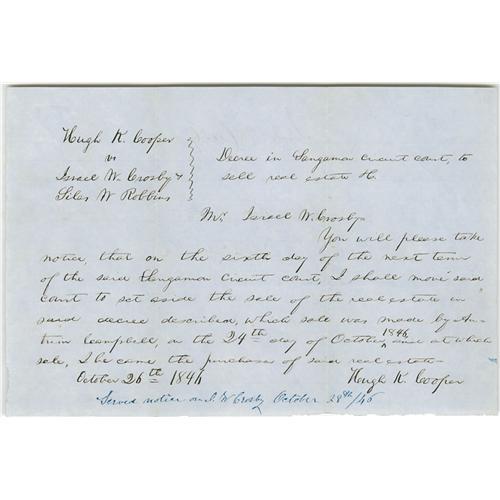 Hugh K. Cooper
vs
Israel W. Crosby &
Silas W Robbins
Decree in Sangamon Circuit Court, to
sell real estate &c.
Mr. Israel W. Crosby
You will please take
notice, that on the sixth day of the next term
of the said Sangamon Circuit Court, I shall move said
court to set aside the sale of the real estate in
said decree described, which sale was made by An-
trim Campbell, on the 24th day of October 1846, and at which
sale, I became the purchase of said real estate
October 26th 1846
Hugh K. Cooper
Served notice on I. W Crosby October 28th/46